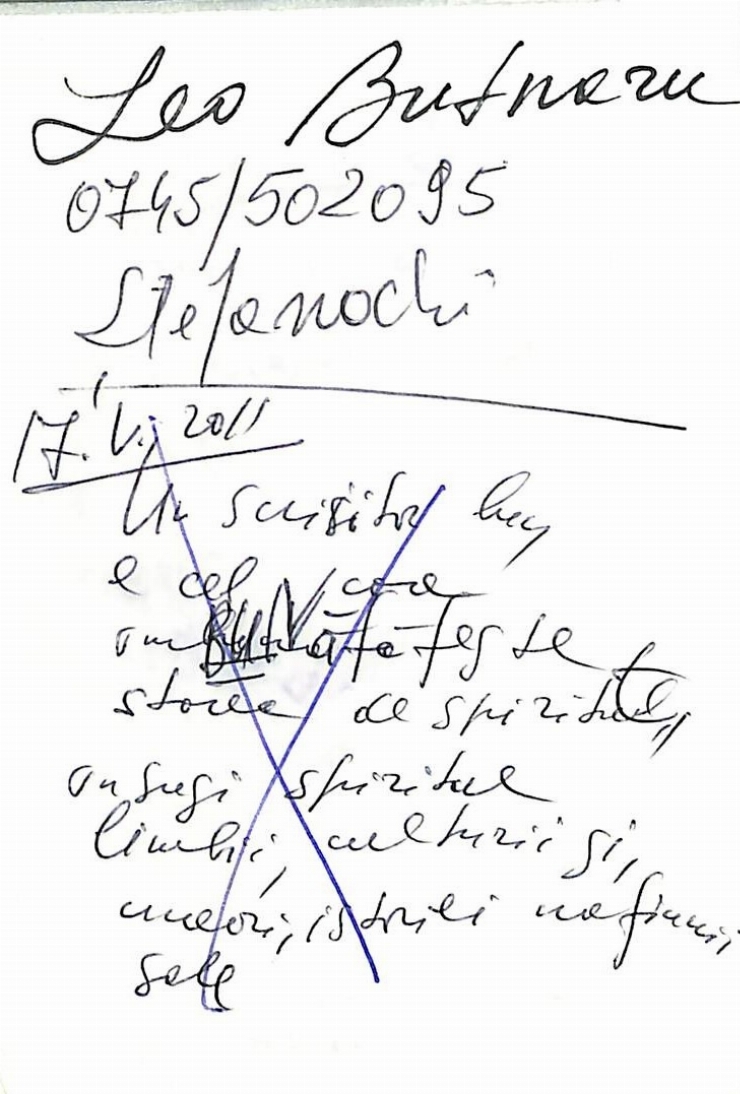 Leo Butnaru
0745/502095
Ștefanachi
17.V. 2011
Un scriitor bun
e cel care
îmbunătățește
starea de spirit,
însuși spiritul
limbii, culturii și,
uneori, istoriei națiunii
sale